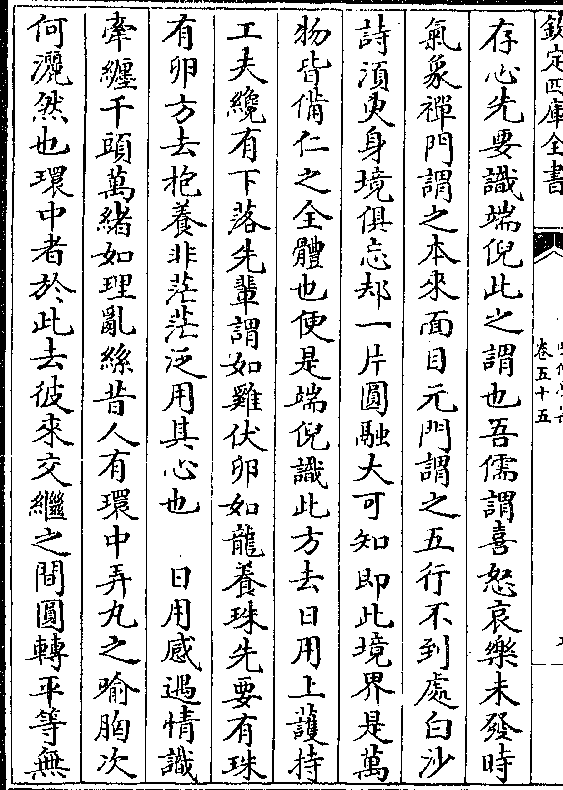 欽定四庫全書
卷五十五
存心先要識端倪此之謂也吾儒謂喜怒哀樂未發時
氣象禪門謂之本來面目元門謂之五行不到處白沙
詩須臾身境俱忘却一片圓融大可知即此境界是萬
物皆備仁之全體也便是端倪識此方去日用上䕶持
工夫纔有下落先輩謂如雞伏卵如龍養珠先要有珠
有卵方去抱養非茫茫泛用其心也　日用感遇情識
牽纏千頭萬緒如理亂絲昔人有環中弄丸之喻胸次
何灑然也環中者於此去彼來交繼之間圓轉平等無